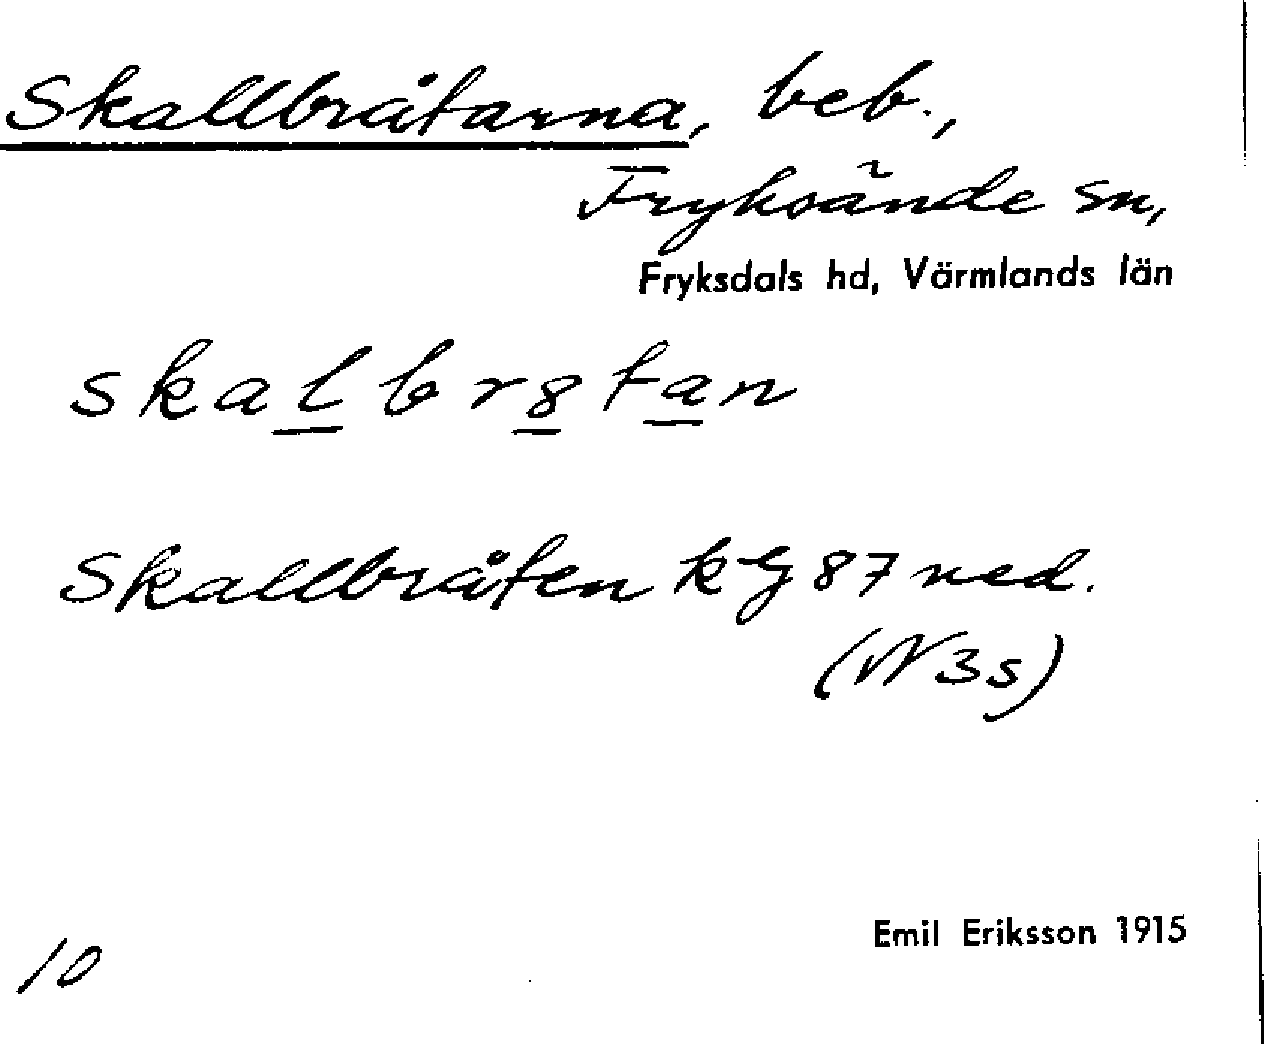 Skallbråtarna, beb.,
Fryksände sn,
Fryksdals hd, Värmlands län
skalbr8tan
Skallbråten kG 87 ned.
(N3s)
Emil Eriksson 1915
10